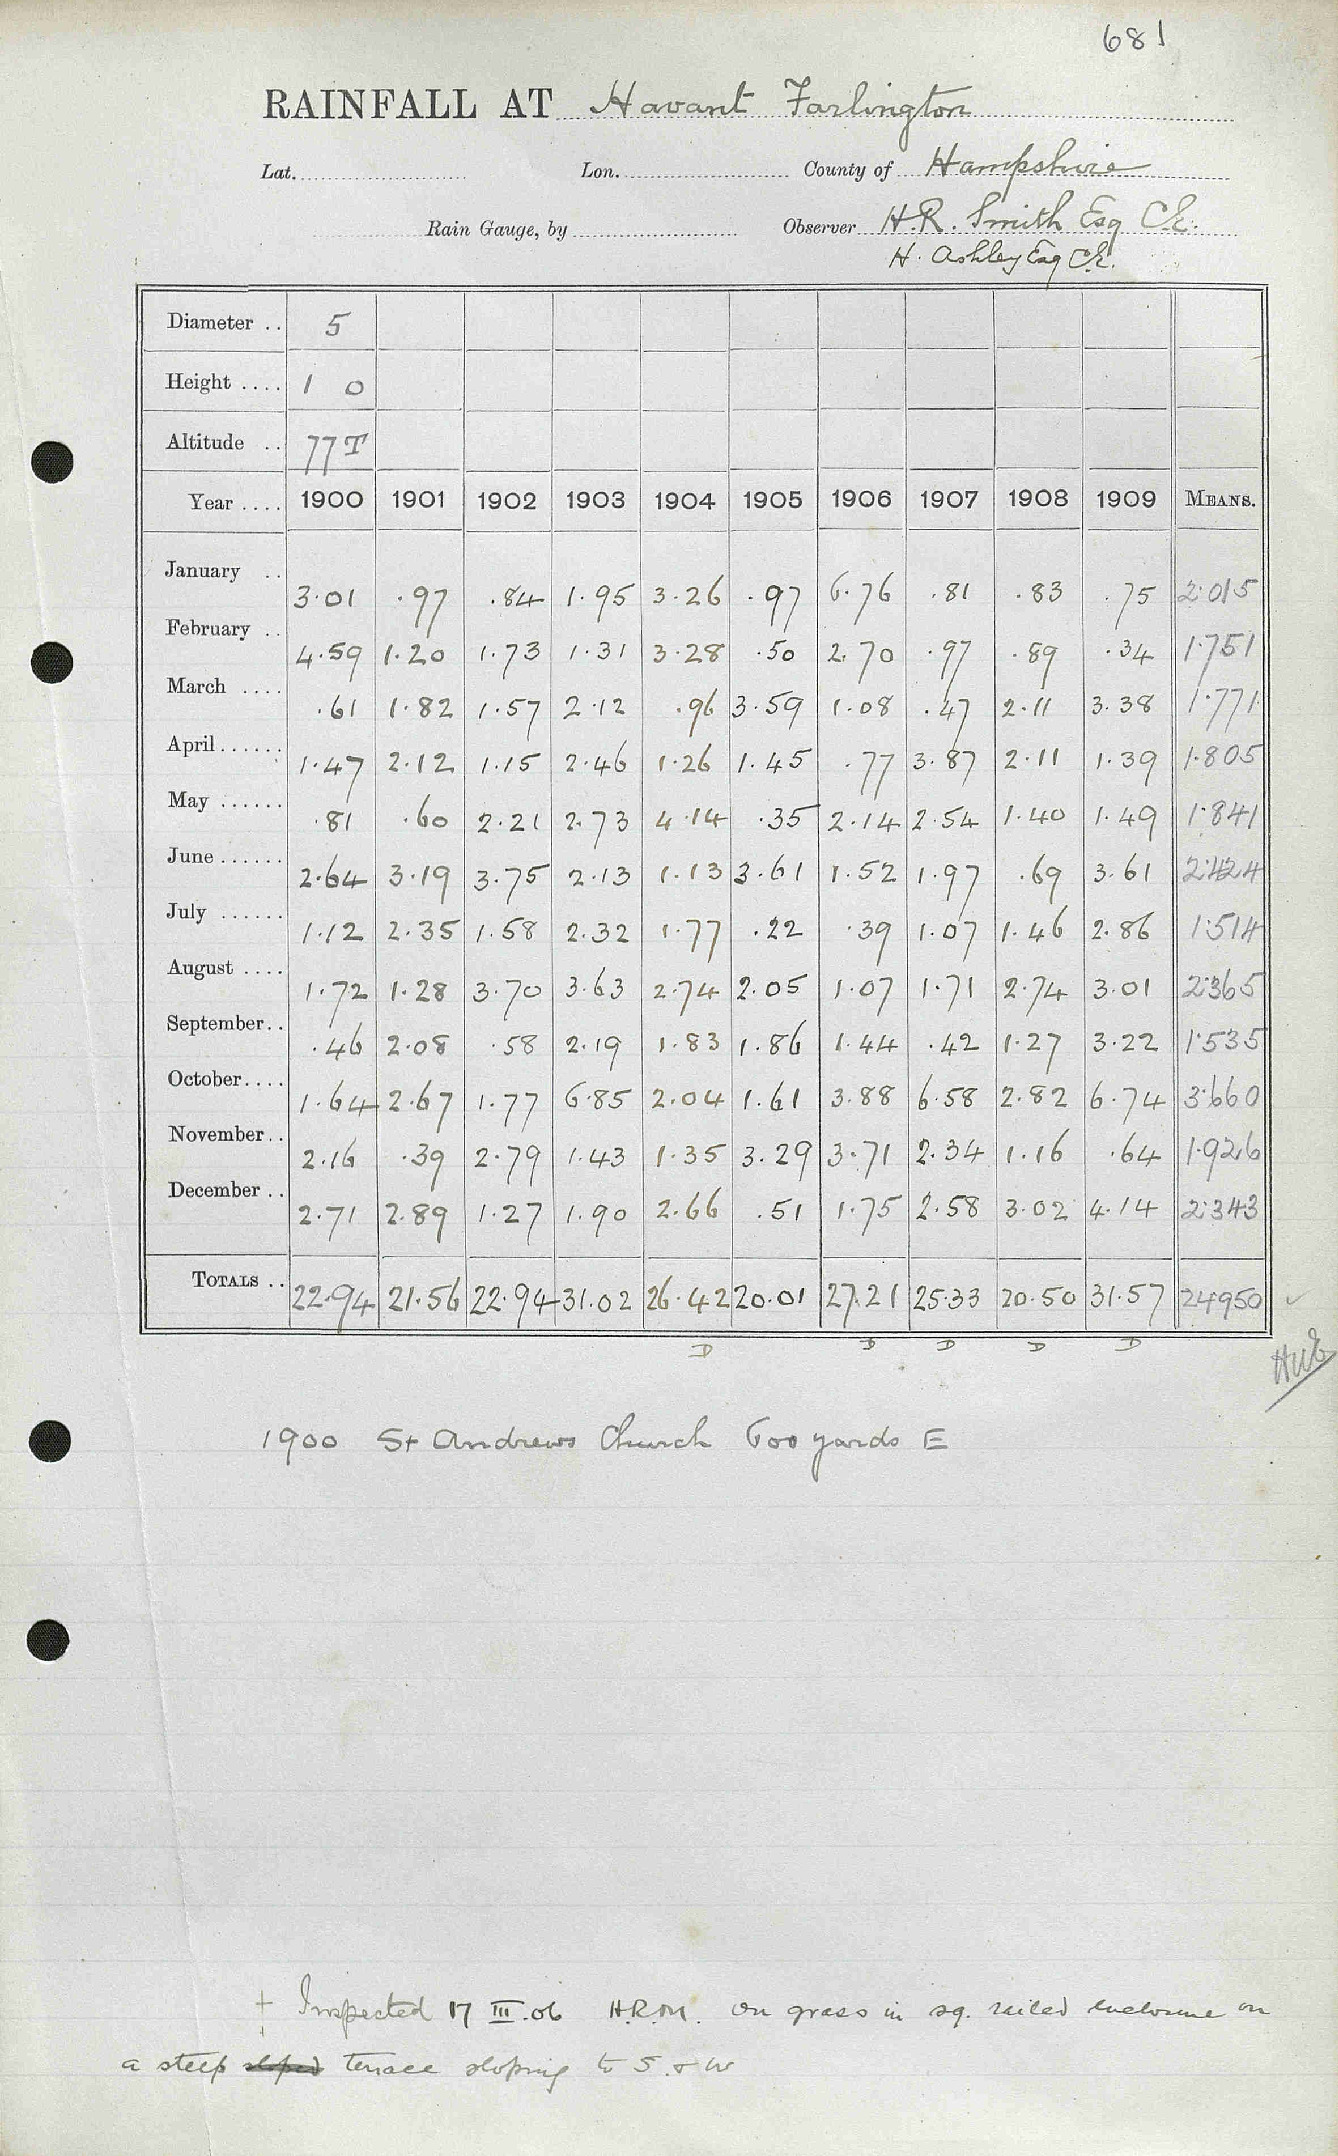 681
RAINFALL AT Havant Farlington
Lat. Lon. County of Hampshire
Rain Gauge, by Observer H.R. Smith Esq C.E.
H. Ashley Esq C.E.
Diameter .. 5
Height .... 1 0
Altitude .. 77 T
Year .... 1900 1901 1902 1903 1904 1905 1906 1907 1908 1909 MEANS.
January .. 3.01 .97 .84 1.95 3.26 .97 6.76 .81 .83 .75 2.015
February .. 4.59 1.20 1.73 1.31 3.28 .50 2.70 .97 .89 .34 1.751
March .... .61 1.82 1.57 2.12 .96 3.59 1.08 .47 2.11 3.38 1.771
April ...... 1.47 2.12 1.15 2.46 1.26 1.45 .77 3.87 2.11 1.39 1.805
May ...... .81 .60 2.21 2.73 4.14 .35 2.14 2.54 1.40 1.49 1.841
June ...... 2.64 3.19 3.75 2.13 1.13 3.61 1.52 1.97 .69 3.61 2.424
July ...... 1.12 2.35 1.58 2.32 1.77 .22 .39 1.07 1.46 2.86 1.514
August .... 1.72 1.28 3.70 3.63 2.74 2.05 1.07 1.71 2.74 3.01 2.365
September.. .46 2.08 .58 2.19 1.83 1.86 1.44 .42 1.27 3.22 1.535
October.... 1.64 2.67 1.77 6.85 2.04 1.61 3.88 6.58 2.82 6.74 3.660
November.. 2.16 .39 2.79 1.43 1.35 3.29 3.71 2.34 1.16 .64 1.926
December .. 2.71 2.89 1.27 1.90 2.66 .51 1.75 2.58 3.02 4.14 2.343
TOTALS .. 22.94 21.56 22.94 31.02 26.42 20.01 27.21 25.33 20.50 31.57 24950
D D D D D
1900 St Andrews Church 600 yards E
† Inspected 17 III.06 H.R.M. On grass in sq. railed enclosure on
a steep sloped terrace sloping to S. & W